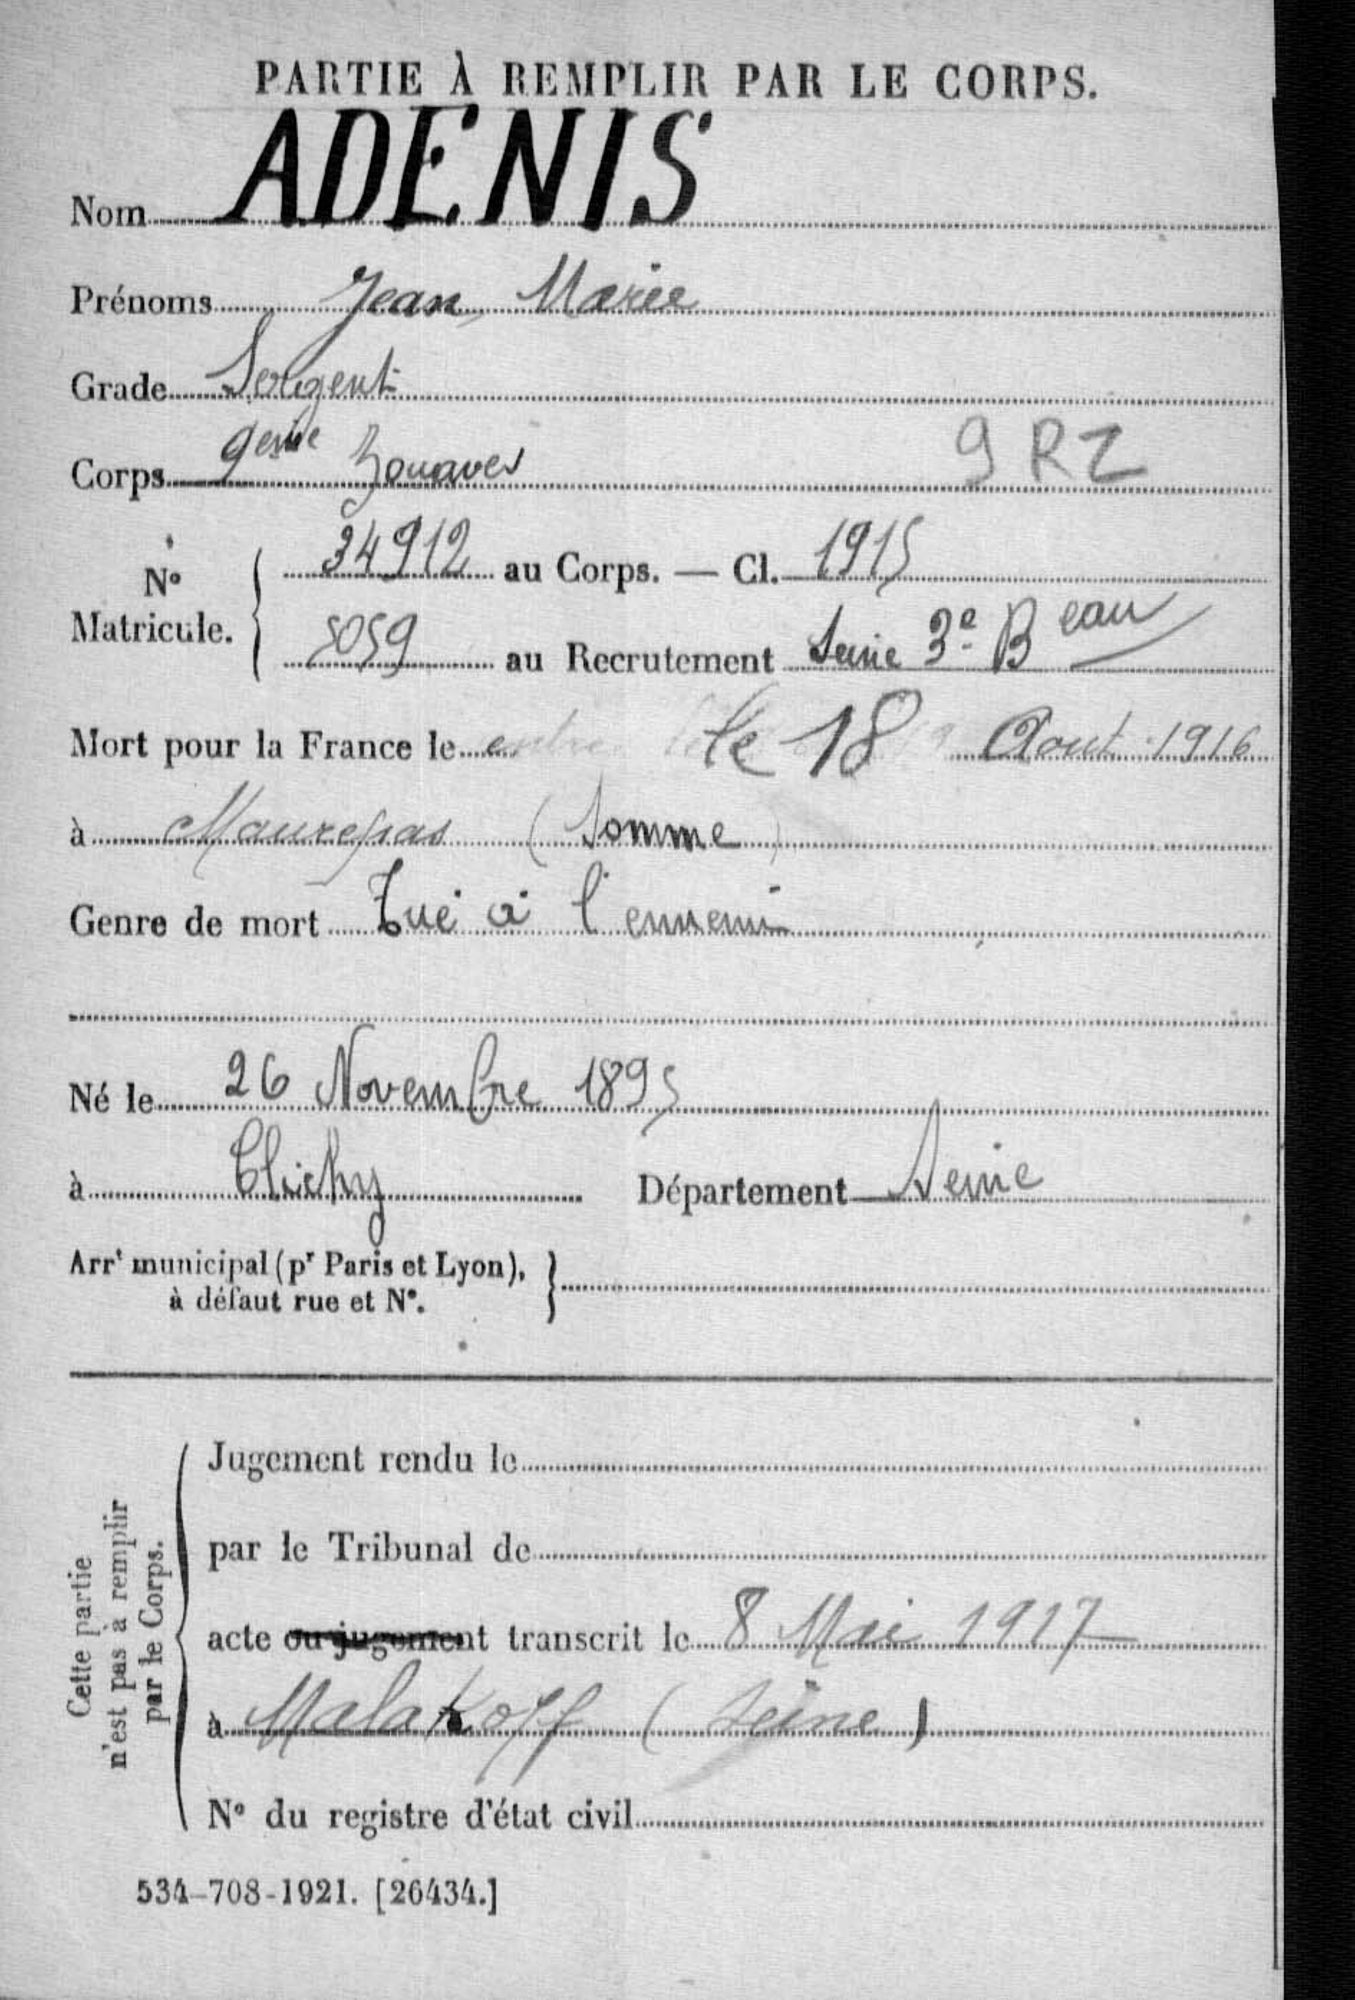 PARTIE À REMPLIR PAR LE CORPS.
Nom ADENIS
Prénoms Jean, Marie
Grade Sergent
Corps 9eme Zouaves 9 RZ
N° Matricule. 34912 au Corps. — Cl. 1915
5059 au Recrutement Seine 3e Beau
Mort pour la France le entre le 18 Aout 1916
à Maurepas (Somme)
Genre de mort Tué à l'ennemi
Né le 26 Novembre 1895
à Clichy Département Seine
Arrt municipal (pr Paris et Lyon),
à défaut rue et N°.
Cette partie
n'est pas à remplir
par le Corps.
Jugement rendu le
par le Tribunal de
acte ou jugement transcrit le 8 Mai 1917
à Malakoff (Seine)
N° du registre d'état civil
534-708-1921. [26434.]